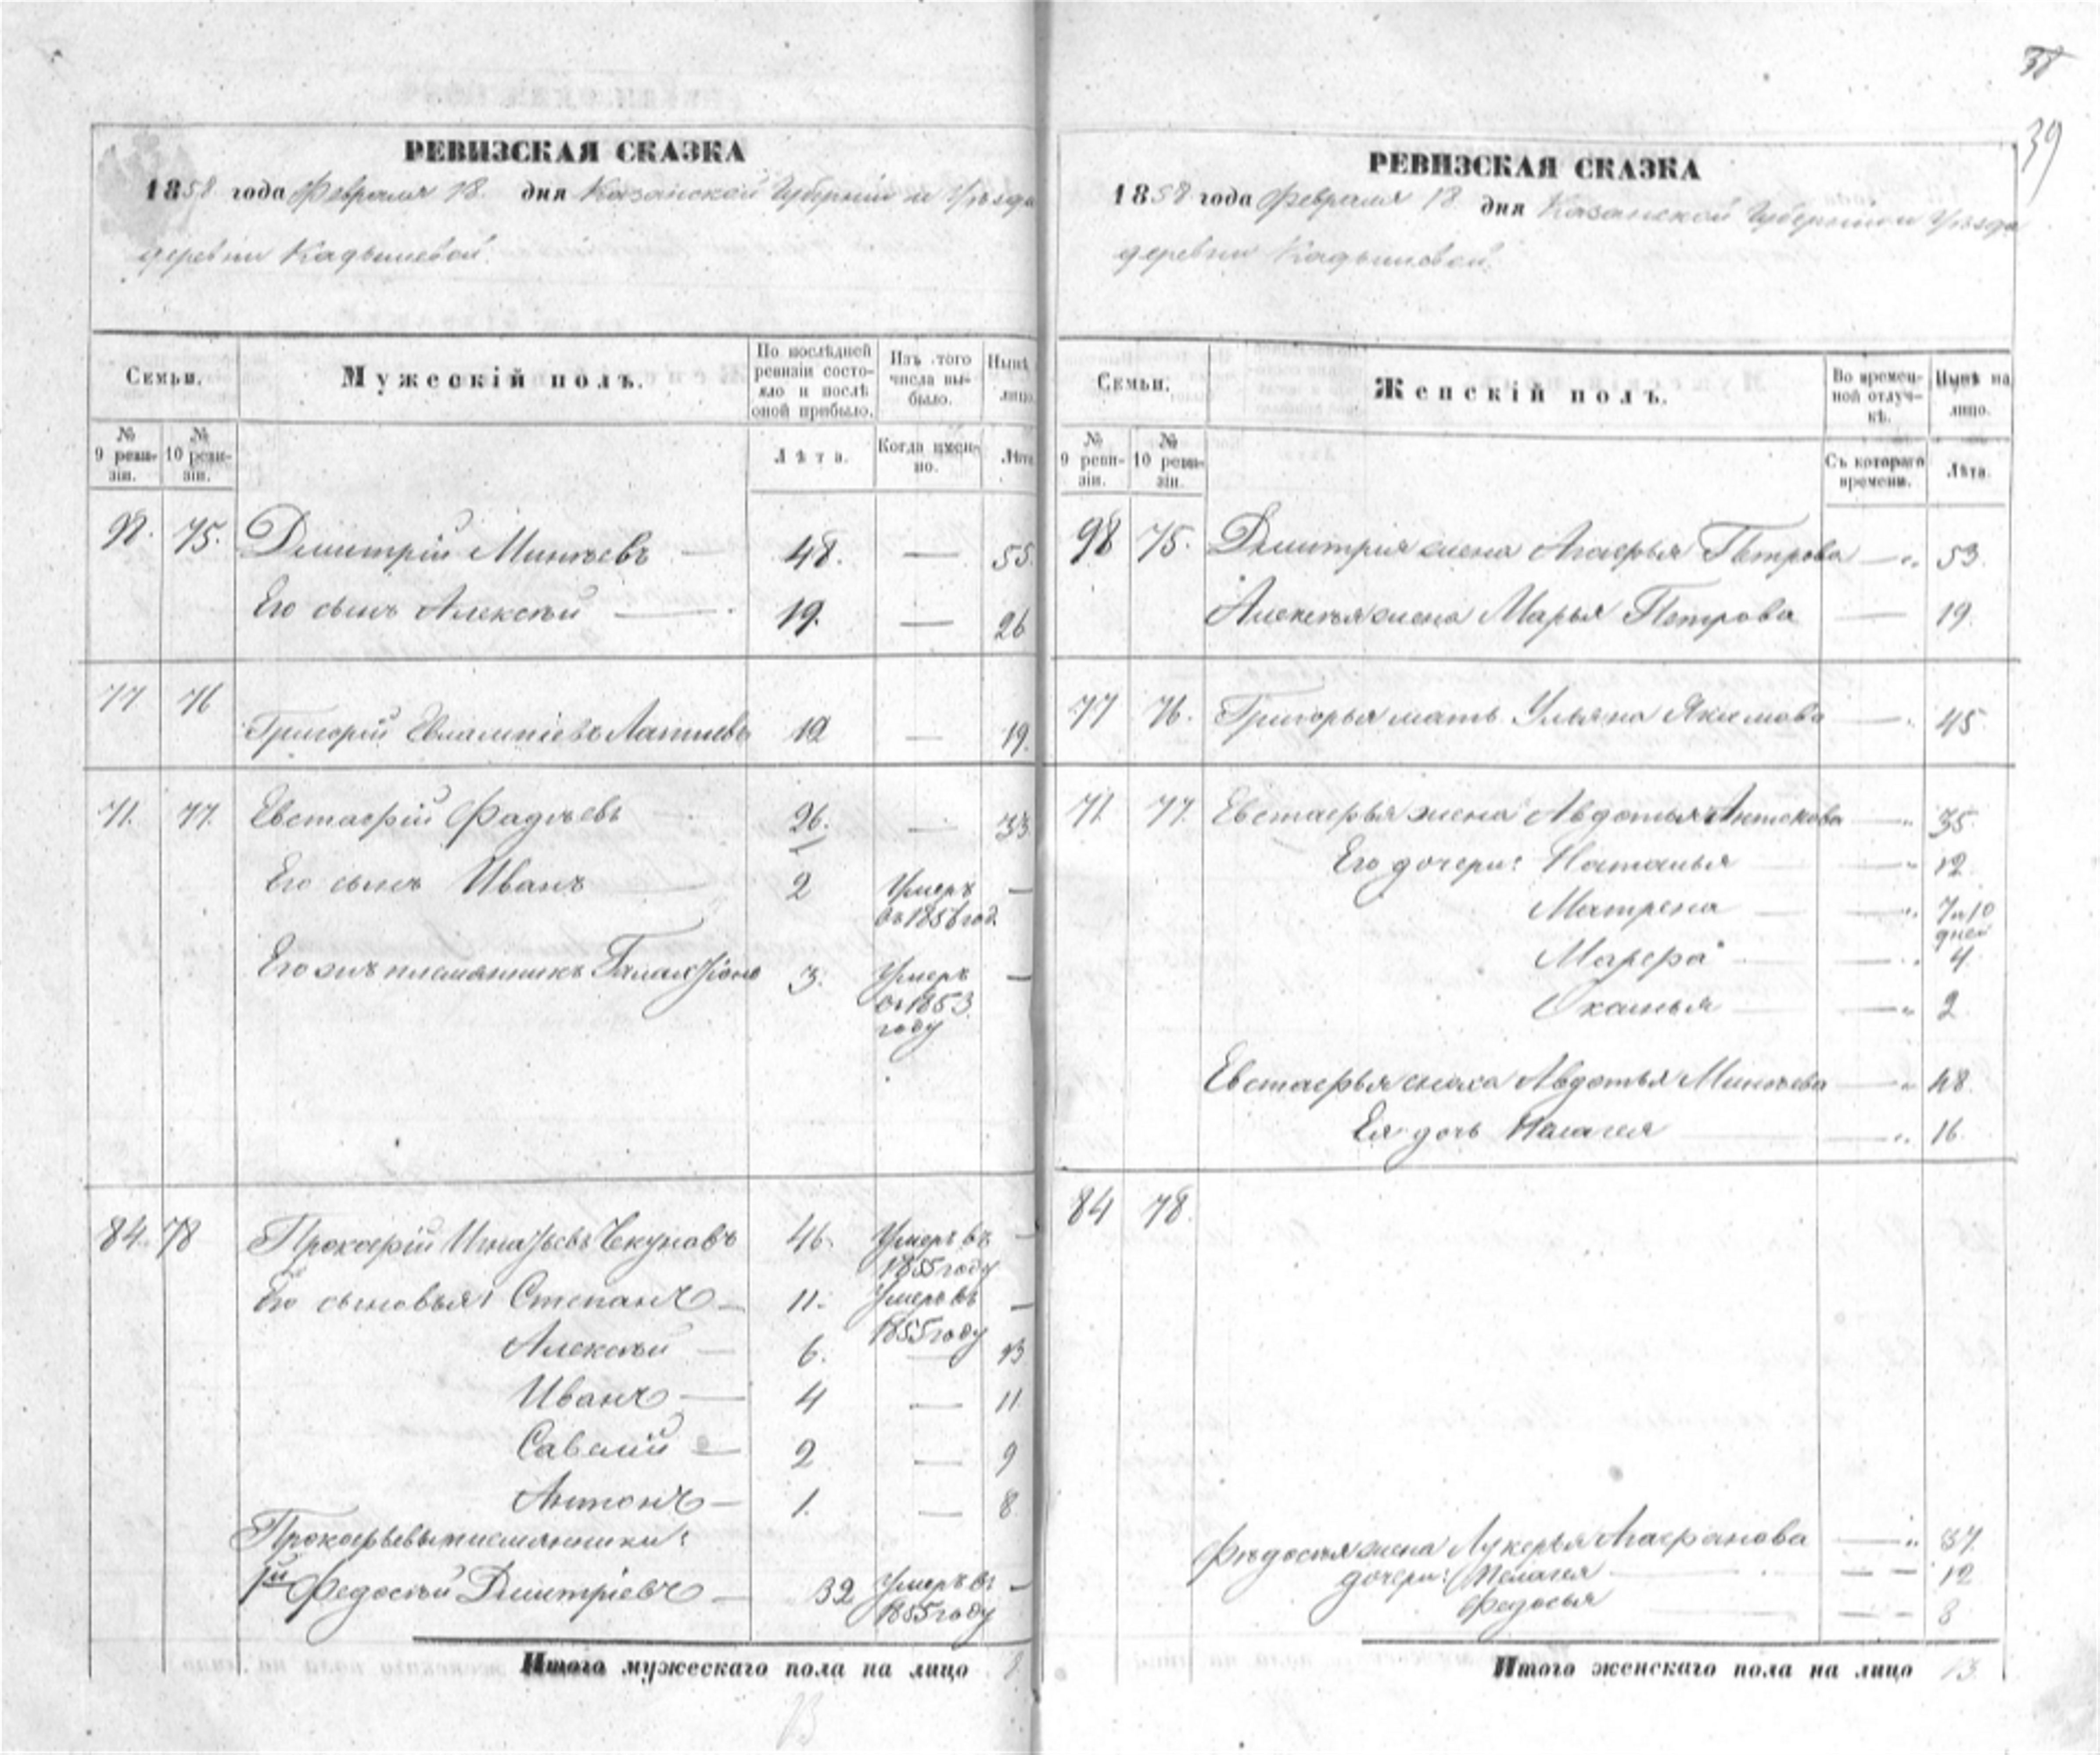 38
39
РЕВИЗСКАЯ СКАЗКА
1858 года Февраля 18 дня Казанской Губернии и Уѣзда
деревни Кадышевой.
Семьи.
Мужескій полъ.
По послѣдней ревизіи состояло и послѣ оной прибыло.
Изъ того числа выбыло.
Нынѣ лицо.
№ 9 ревизіи.
№ 10 ревизіи.
Лѣта.
Когда именно.
Лѣта
98. 75. Дмитрій Минѣевъ — 48. — 55.
Его сынъ Алексѣй — 19. — 26
77 76 Григорій Евлампіевъ Лаптевъ 12 — 19.
71. 77. Евстафій Фадѣевъ 26. — 33
Его сынъ Иванъ 2 Умеръ въ 185 год. —
Его же племянникъ Галактіонъ 3. Умеръ въ 1853 году —
84. 78 Прокофій Игнатьевъ Чекуновъ 46. Умеръ въ 1855 году —
Его сыновья: Степанъ — 11. Умеръ въ 1855 году —
Алексѣй — 6. — 13
Иванъ — 4 — 11
Савелій — 2 — 9
Антонъ — 1. — 8
Прокофьевы племянники:
1й Федосѣй Дмитріевъ — 32 Умеръ въ 1855 году —
Итого мужескаго пола на лицо 8.
13
РЕВИЗСКАЯ СКАЗКА
1858 года Февраля 18 дня Казанской Губерніи и Уѣзда
деревни Кадышевой.
Семьи.
Женскій полъ.
Во временной отлучкѣ.
Нынѣ на лицо.
№ 9 ревизіи.
№ 10 ревизіи.
Съ котораго времени.
Лѣта.
98 75. Дмитрия жена Агафья Петрова — 53.
Алексѣя жена Марья Петрова — 19.
77 76. Григорья мать Ульяна Якимова — 45
71. 77. Евстафья жена Авдотья Антонова — 35.
Его дочери: Наталья — 12
Матрена — 7 и 10 дней
Марфа — 4
Оксинья — 2
Евстафья сноха Авдотья Минѣева — 48.
Ея дочь Палагея — 16.
84 78.
Федосѣя жена Лукерья Агафонова — 37.
дочери: Пелагея — 12
Федосья — 8
Итого женскаго пола на лицо 13.